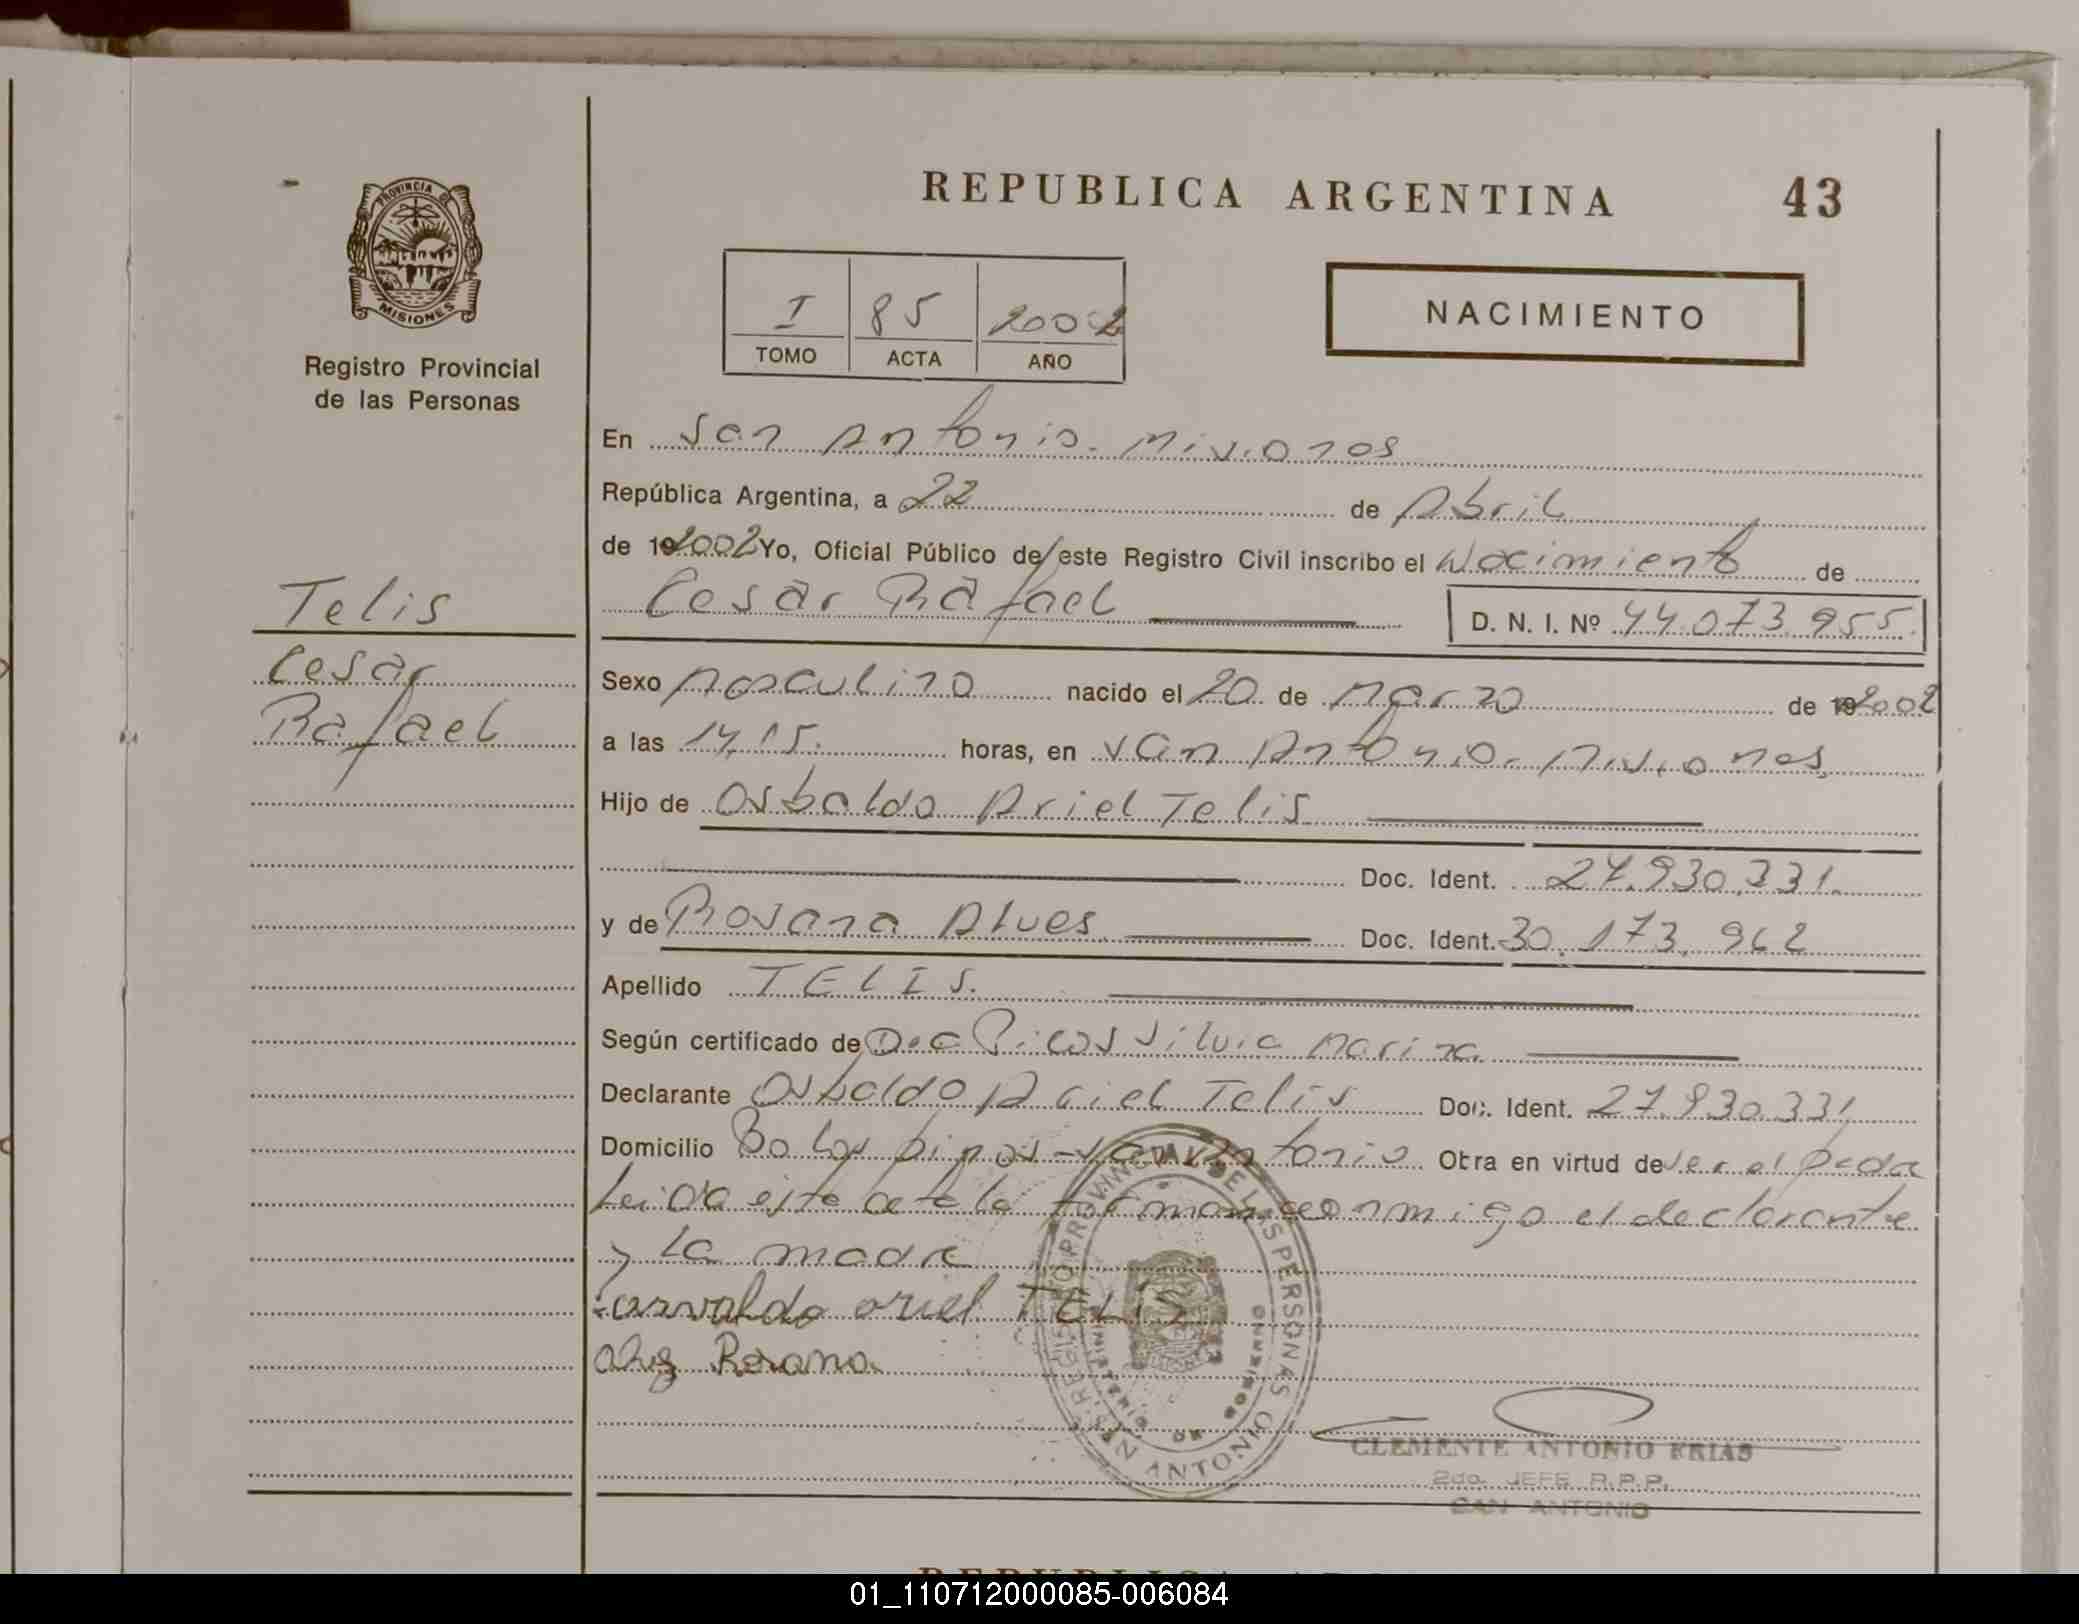 REPUBLICA ARGENTINA 43
PROVINCIA
MISIONES
Registro Provincial
de las Personas
I 85 2002
TOMO ACTA AÑO
NACIMIENTO
En San Antonio. Misiones
República Argentina, a 22 de Abril
de 19 2002 Yo, Oficial Público de este Registro Civil inscribo el Nacimiento de
Cesar Rafael D. N. I. Nº 44.073.955.
Telis
Cesar
Rafael
Sexo Masculino nacido el 20 de Marzo de 19 2002
a las 14,15. horas, en San Antonio. Misiones
Hijo de Osbaldo Ariel Telis
Doc. Ident. 27.930.331.
y de Rosana Alves Doc. Ident. 30.173.962
Apellido TELIS.
Según certificado de Doc Picos Silvia Marina
Declarante Osbaldo Ariel Telis Doc. Ident. 27.930.331
Domicilio Bo Los pinos - San Antonio Otra en virtud de ser el
Leida este acta la firman conmigo el declarante
y La madre
osvaldo ariel TELIS
Rosana
REGISTRO PROVINCIAL DE LAS PERSONAS
MINISTERIO DE GOBIERNO
SAN ANTONIO
CLEMENTE ANTONIO FRIAS
2do. JEFE R.P.P.
SAN ANTONIO
01_110712000085-006084